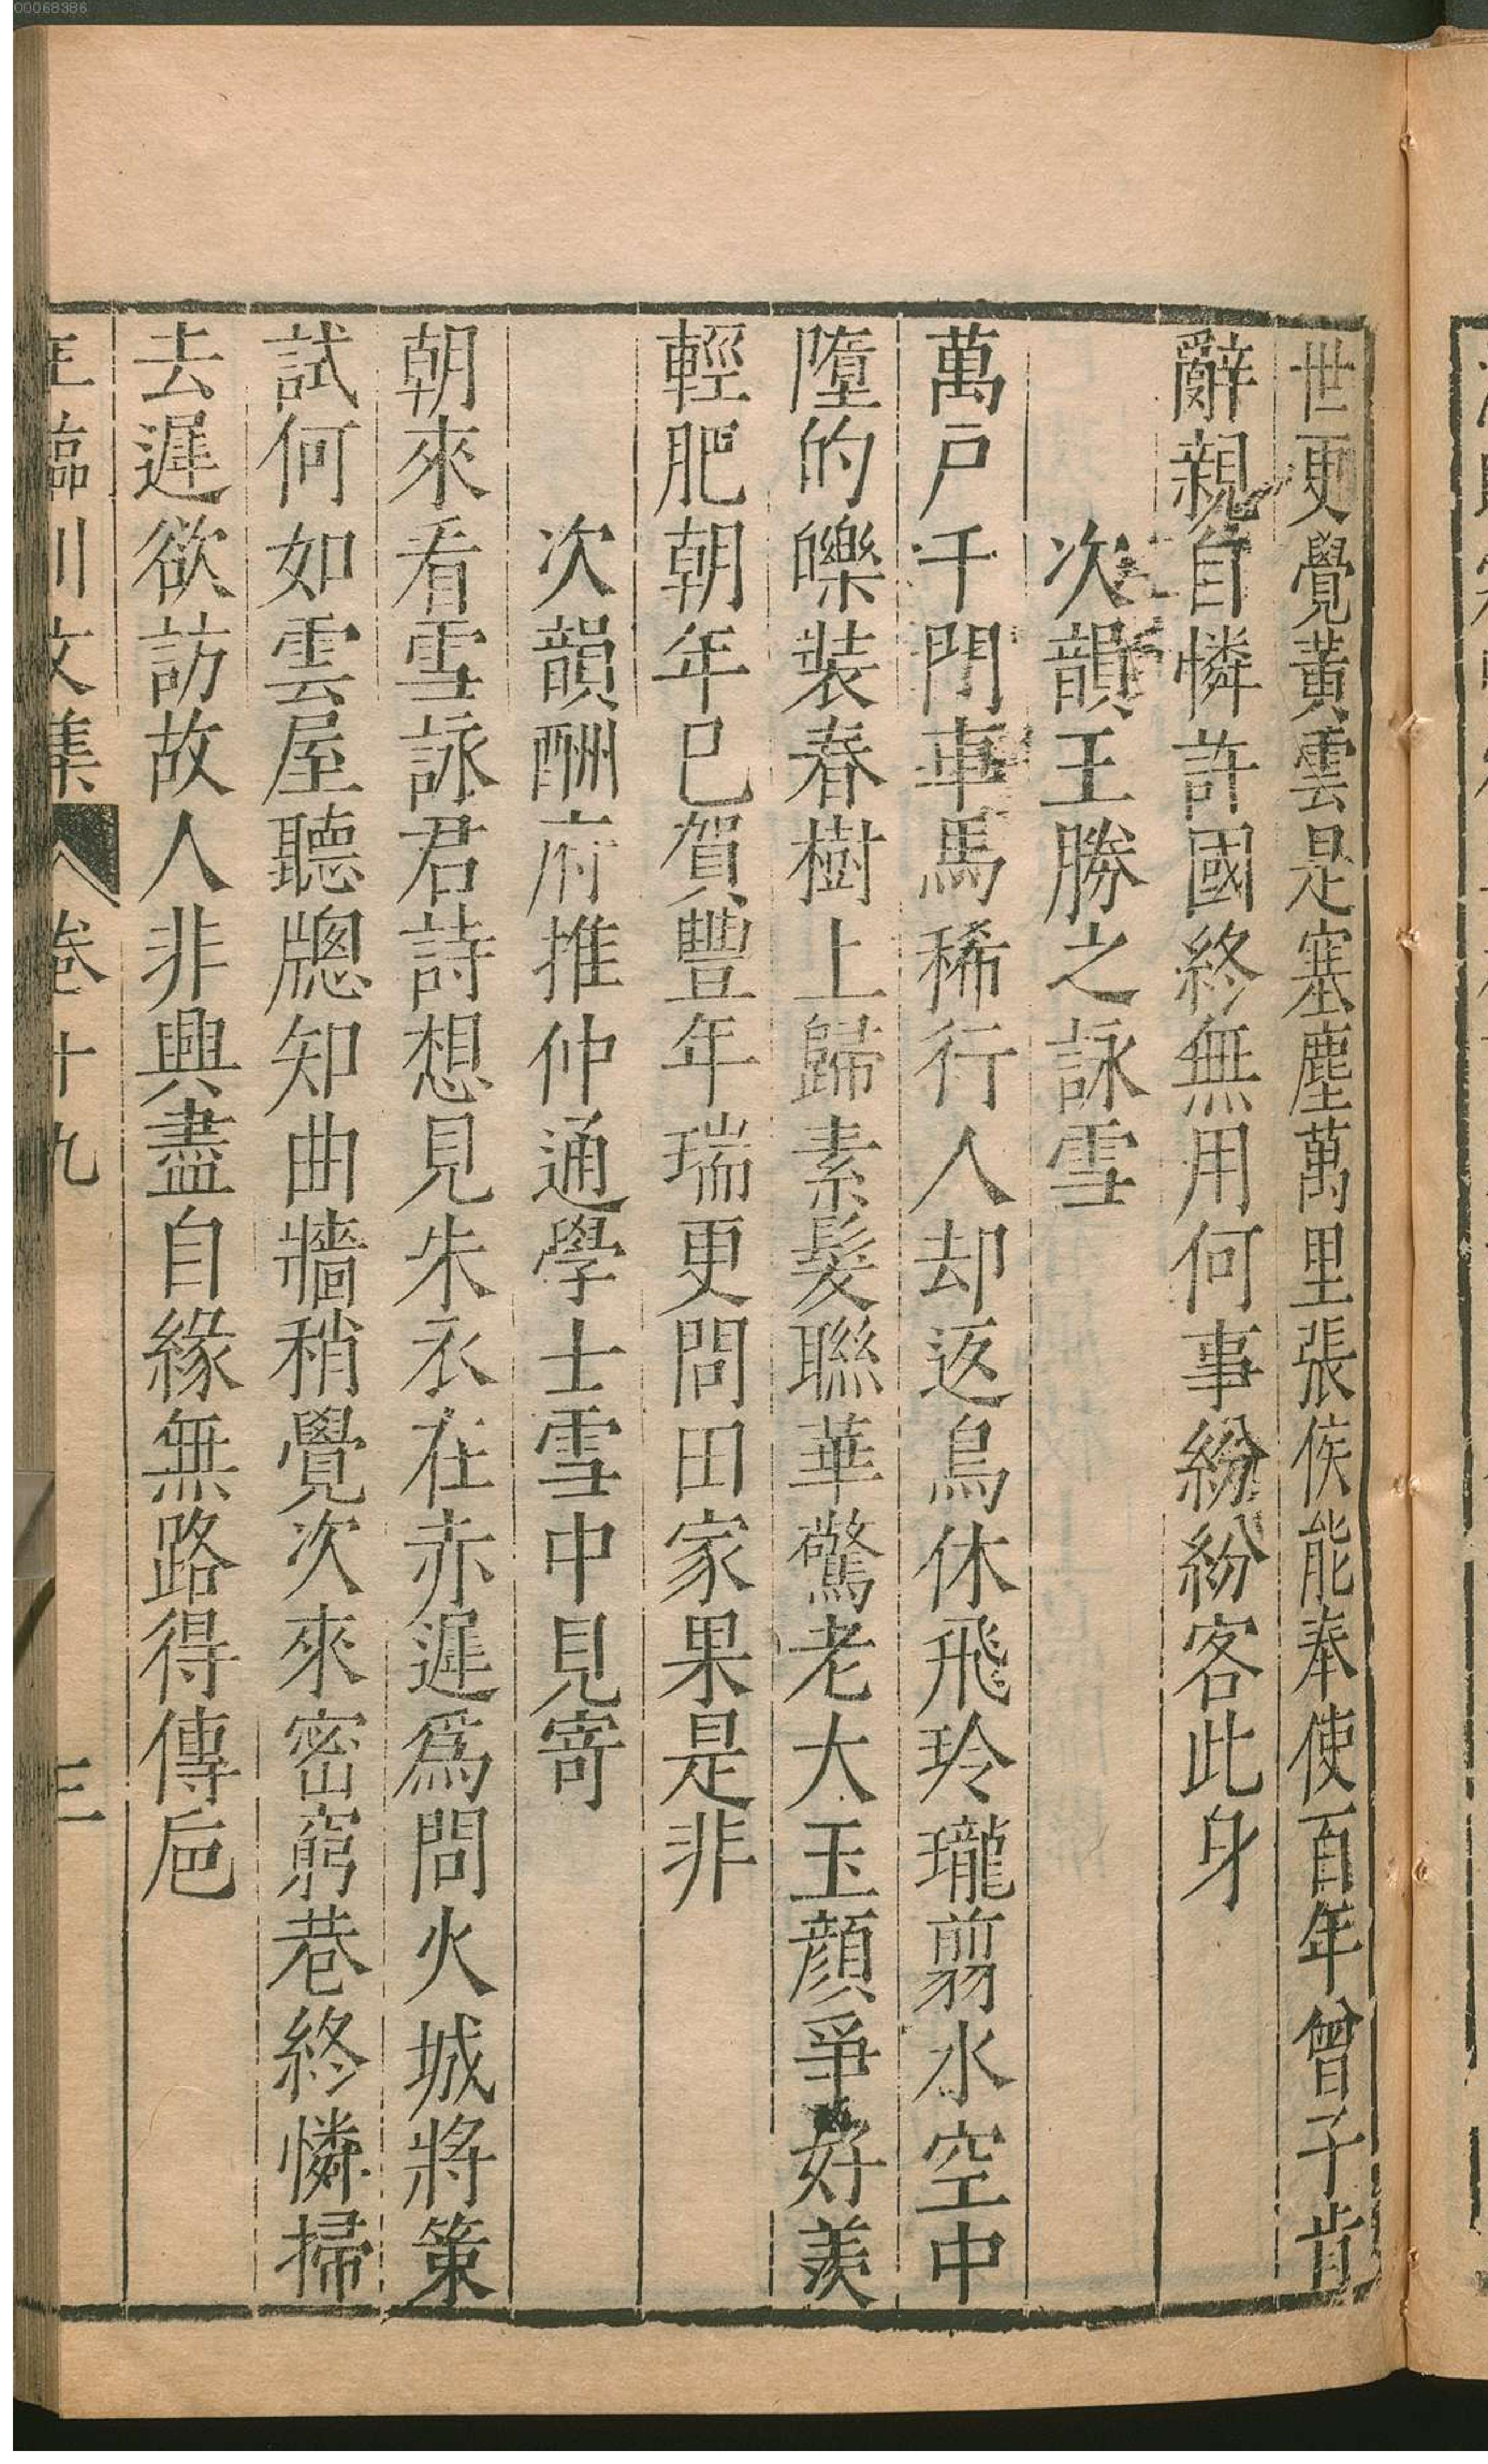 00068386
世更覺黃雲是塞塵萬里張侯能奉使百年曾子肯
辭親自憐許國終無用何事紛紛客此身
次韻王勝之詠雪
萬戶千門車馬稀行人却返鳥休飛玲瓏翦水空中
墮的皪裝春樹上歸素髮聯華驚老大玉顏爭好羨
輕肥朝年已賀豐年瑞更問田家果是非
次韻酬府推仲通學士雪中見寄
朝來看雪詠君詩想見朱衣在赤遲爲問火城將策
試何如雲屋聽牕知曲牆稍覺次來密窮巷終憐掃
去遲欲訪故人非興盡自緣無路得傳巵
王臨川文集 卷十九 三